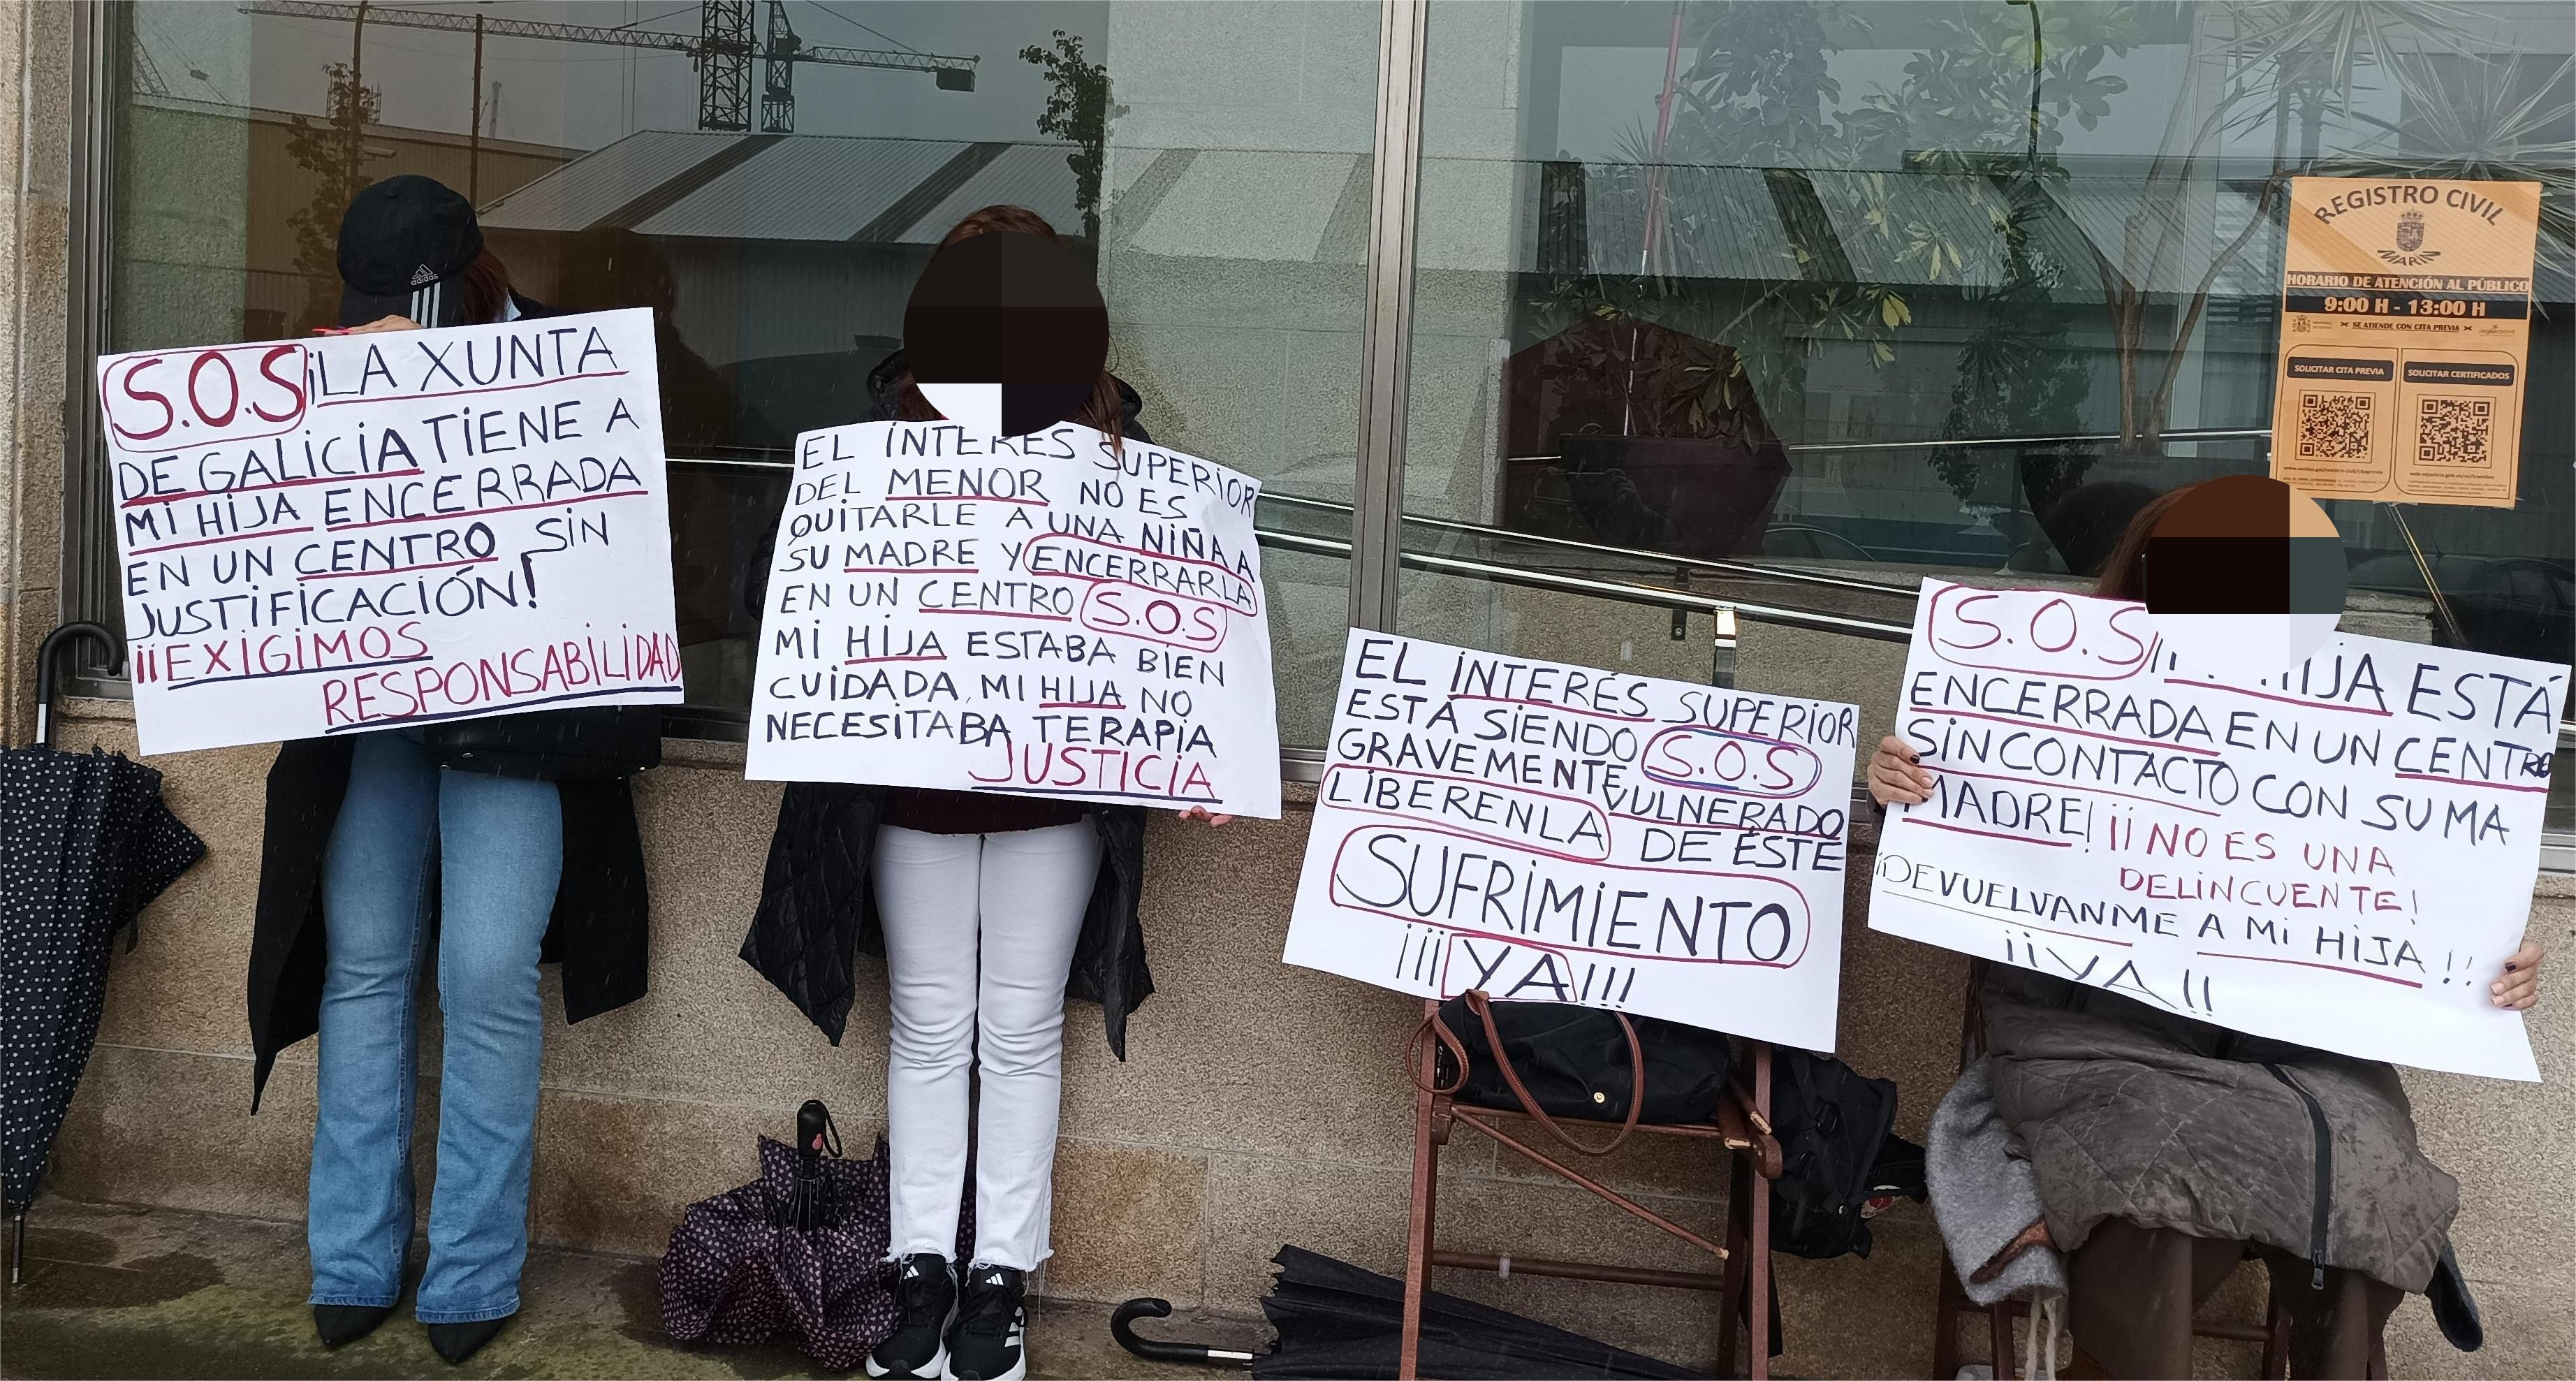 adidas
S.O.S ¡LA XUNTA
DE GALICIA TIENE A
MI HIJA ENCERRADA
EN UN CENTRO SIN
JUSTIFICACIÓN!
¡¡EXIGIMOS
RESPONSABILIDAD
EL INTERES SUPERIOR
DEL MENOR NO ES
QUITARLE A UNA NIÑA A
SU MADRE Y ENCERRARLA
EN UN CENTRO S.O.S
MI HIJA ESTABA BIEN
CUIDADA, MI HIJA NO
NECESITABA TERAPIA
JUSTICIA
EL INTERÉS SUPERIOR
ESTÁ SIENDO S.O.S
GRAVEMENTE VULNERADO
LIBERENLA DE ÉSTE
SUFRIMIENTO
¡¡¡YA!!!
S.O.S HIJA ESTÁ
ENCERRADA EN UN CENTRO
SIN CONTACTO CON SU MA
MADRE! ¡¡NO ES UNA
DELINCUENTE!
¡DEVUELVANME A MI HIJA!!
¡¡YA!!
REGISTRO CIVIL
MARÍN
HORARIO DE ATENCIÓN AL PÚBLICO
9:00 H - 13:00 H
SE ATIENDE CON CITA PREVIA
SOLICITAR CITA PREVIA
SOLICITAR CERTIFICADOS